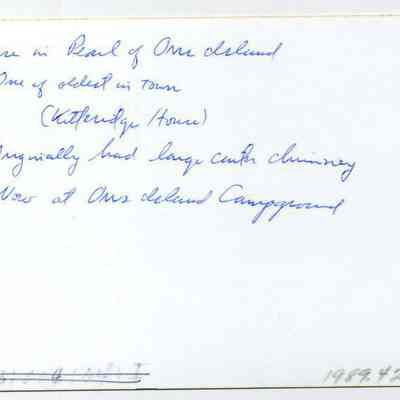 in Pearl of Orrs Island
One of oldest in town
(Kittredge House)
Originally had large center chimney
Now at Orrs Island Campground
1989.42